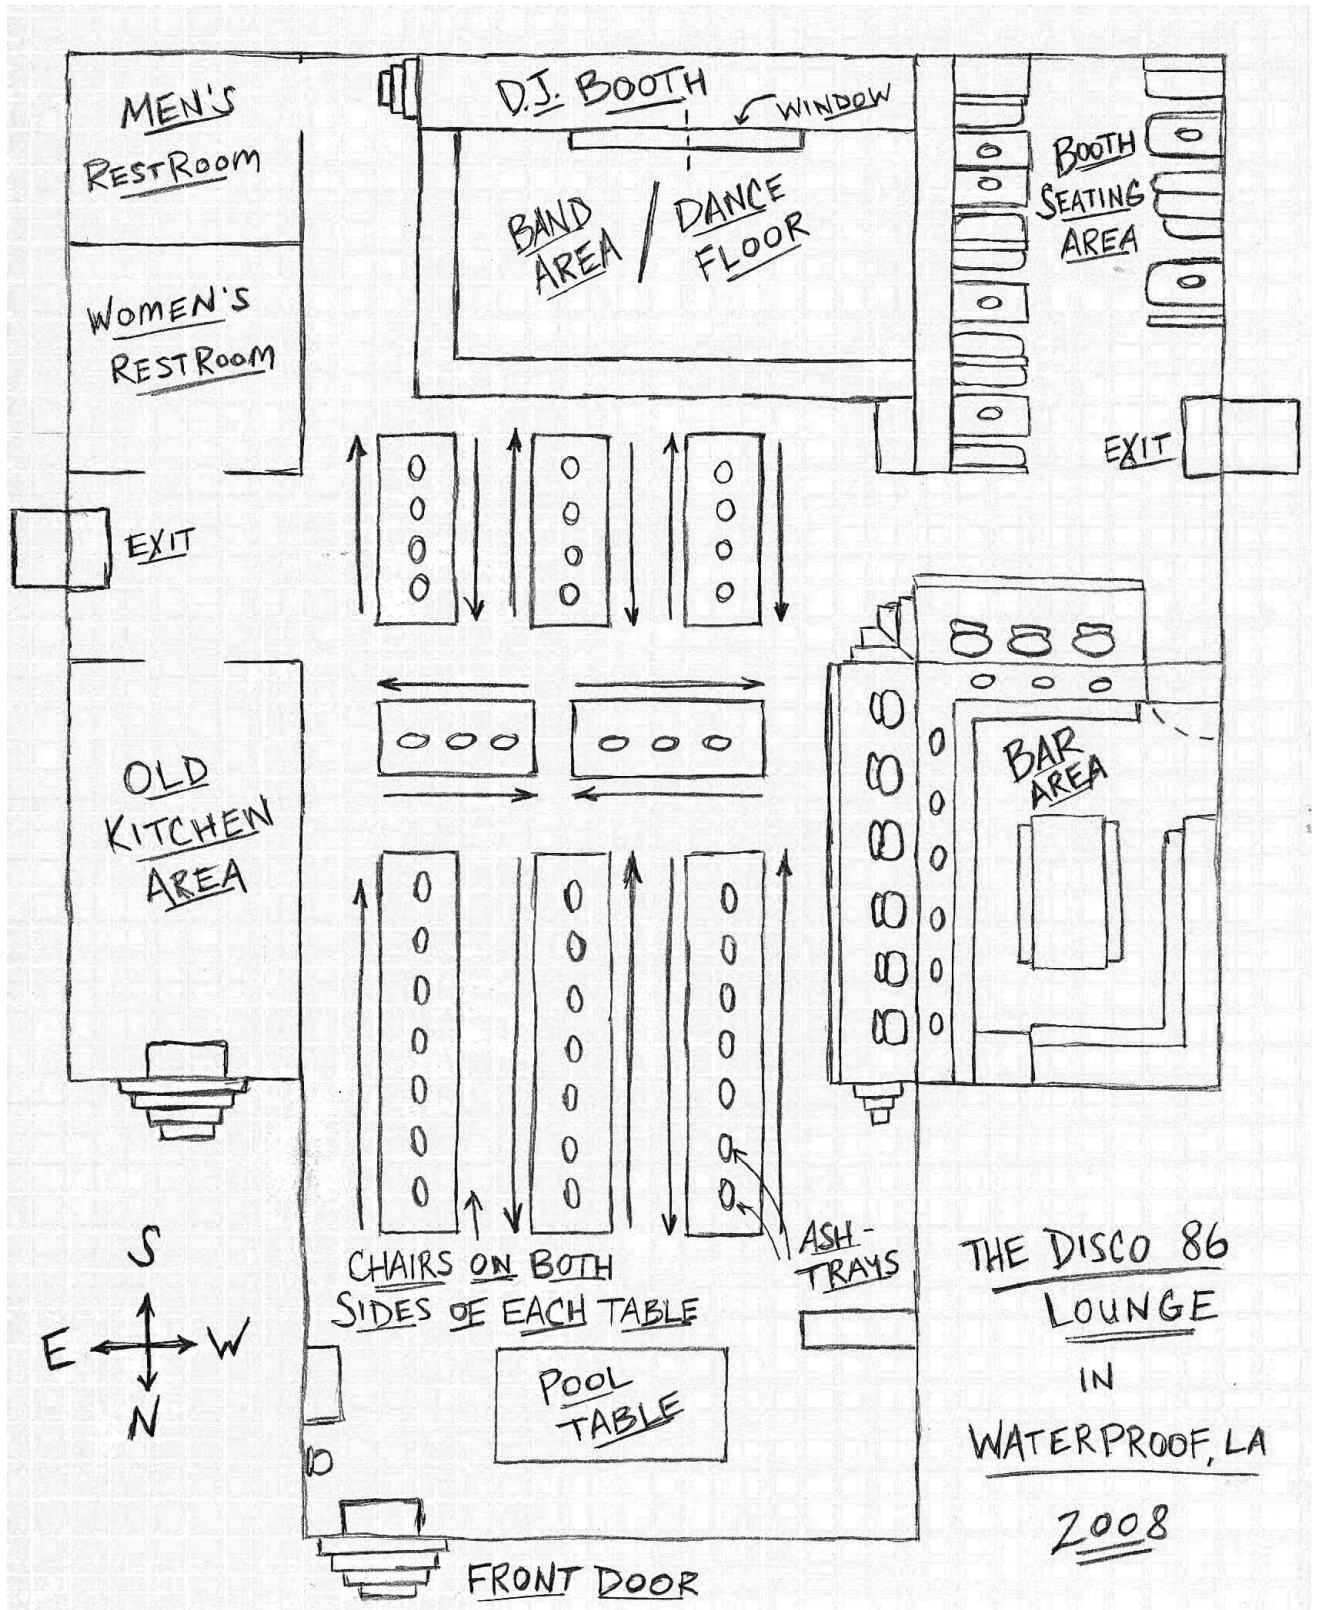 MEN'S
RESTROOM
D.J. BOOTH
WINDOW
BAND
AREA
/
DANCE
FLOOR
BOOTH
SEATING
AREA
WOMEN'S
RESTROOM
EXIT
EXIT
OLD
KITCHEN
AREA
BAR
AREA
CHAIRS ON BOTH
SIDES OF EACH TABLE
ASH-
TRAYS
S
E W
N
POOL
TABLE
THE DISCO 86
LOUNGE
IN
WATERPROOF, LA
2008
FRONT DOOR